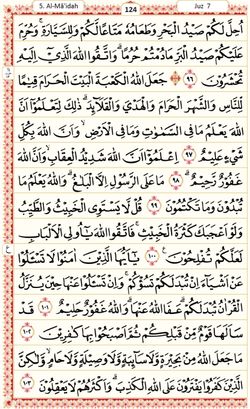 5. Al-Mâ'idah 124 Juz 7
اُحِلَّ لَكُمْ صَيْدُ الْبَحْرِ وَطَعَامُهٗ مَتَاعًا لَّكُمْ وَلِلسَّيَّارَةِ ۚ وَحُرِّمَ
عَلَيْكُمْ صَيْدُ الْبَرِّ مَا دُمْتُمْ حُرُمًا ۗ وَاتَّقُوا اللّٰهَ الَّذِيْٓ اِلَيْهِ
تُحْشَرُوْنَ ٩٦ جَعَلَ اللّٰهُ الْكَعْبَةَ الْبَيْتَ الْحَرَامَ قِيٰمًا
لِّلنَّاسِ وَالشَّهْرَ الْحَرَامَ وَالْهَدْيَ وَالْقَلَاۤىِٕدَ ۗ ذٰلِكَ لِتَعْلَمُوْٓا اَنَّ
اللّٰهَ يَعْلَمُ مَا فِى السَّمٰوٰتِ وَمَا فِى الْاَرْضِ ۙ وَاَنَّ اللّٰهَ بِكُلِّ
شَيْءٍ عَلِيْمٌ ٩٧ اِعْلَمُوْٓا اَنَّ اللّٰهَ شَدِيْدُ الْعِقَابِ وَاَنَّ اللّٰهَ
غَفُوْرٌ رَّحِيْمٌ ۗ ٩٨ مَا عَلَى الرَّسُوْلِ اِلَّا الْبَلٰغُ ۗ وَاللّٰهُ يَعْلَمُ مَا
تُبْدُوْنَ وَمَا تَكْتُمُوْنَ ٩٩ قُلْ لَّا يَسْتَوِى الْخَبِيْثُ وَالطَّيِّبُ
وَلَوْ اَعْجَبَكَ كَثْرَةُ الْخَبِيْثِ ۚ فَاتَّقُوا اللّٰهَ يٰٓاُولِى الْاَلْبَابِ
لَعَلَّكُمْ تُفْلِحُوْنَ ١٠٠ يٰٓاَيُّهَا الَّذِيْنَ اٰمَنُوْا لَا تَسْـَٔلُوْا
عَنْ اَشْيَاۤءَ اِنْ تُبْدَ لَكُمْ تَسُؤْكُمْ ۚ وَاِنْ تَسْـَٔلُوْا عَنْهَا حِيْنَ يُنَزَّلُ
الْقُرْاٰنُ تُبْدَ لَكُمْ ۗ عَفَا اللّٰهُ عَنْهَا ۗ وَاللّٰهُ غَفُوْرٌ حَلِيْمٌ ١٠١ قَدْ
سَاَلَهَا قَوْمٌ مِّنْ قَبْلِكُمْ ثُمَّ اَصْبَحُوْا بِهَا كٰفِرِيْنَ ١٠٢
مَا جَعَلَ اللّٰهُ مِنْۢ بَحِيْرَةٍ وَّلَا سَاۤىِٕبَةٍ وَّلَا وَصِيْلَةٍ وَّلَا حَامٍ ۙ وَّلٰكِنَّ
الَّذِيْنَ كَفَرُوْا يَفْتَرُوْنَ عَلَى اللّٰهِ الْكَذِبَ ۗ وَاَكْثَرُهُمْ لَا يَعْقِلُوْنَ ١٠٣